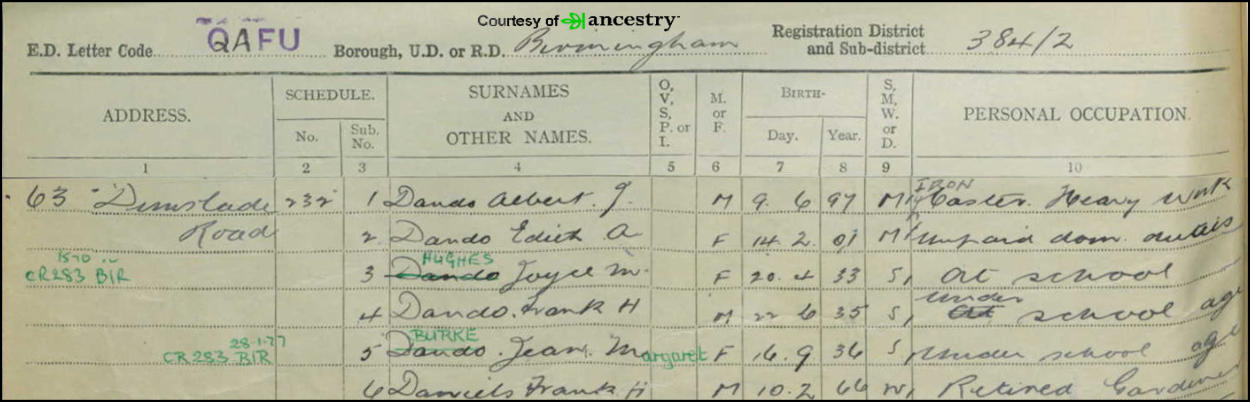 Courtesy of ancestry
E.D. Letter Code QAFU Borough, U.D. or R.D. Birmingham Registration District and Sub-district 384/2
ADDRESS. SCHEDULE. No. Sub. No. SURNAMES AND OTHER NAMES. O, V, S, P. or I. M. or F. BIRTH- Day. Year. S, M, W. or D. PERSONAL OCCUPATION.
1 2 3 4 5 6 7 8 9 10
63 232 1 Dando Albert J. M 9 6 97 M IRON Caster. Heavy Work
Road 2 Dando Edith A F 14.2. 01 M Unpaid dom. duties
CR283 BIR 3 Dando HUGHES Joyce M. F 20.4 33 S, At school
4 Dando. Frank H M 22 6 35 S, At under school age
28.1.77 CR283 BIR 5 Dando. BURKE Jean. Margaret F 16.9 36 S, Under school age
6 Daniels Frank H M 10.2 66 W, Retired Gardener